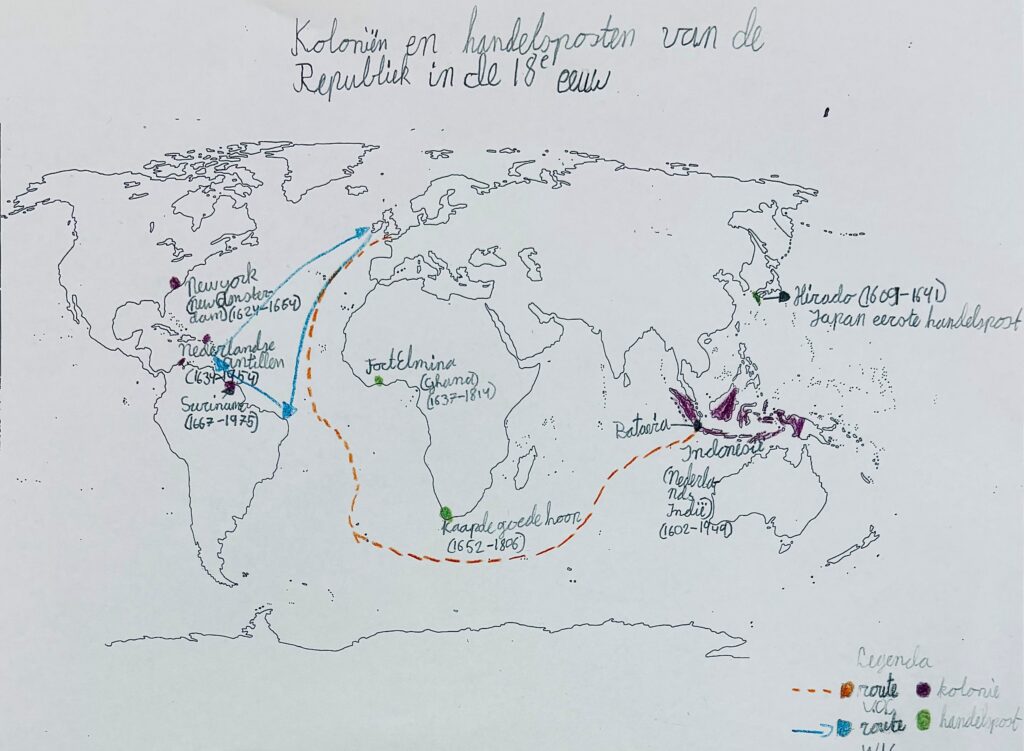 Koloniën en handelsposten van de
Republiek in de 18e eeuw
Newyork
(New Amster-
dam)(1624-1664)
Nederlandse
Antillen
(1634-1954)
Suriname
(1667-1975)
Fort Elmina
(Ghana)
(1637-1814)
Kaap de goede hoop
(1652-1806)
Hirado (1609-1641)
Japan eerste handelspost
Batavia
Indonesië
(Nederla-
nds
Indië)
(1602-1949)
Legenda
route
VOC
kolonie
route
WIC
handelspost